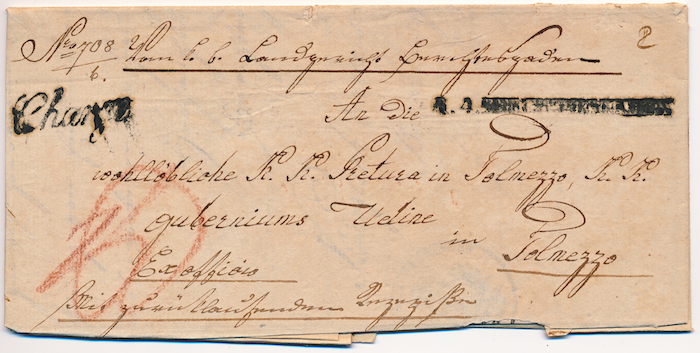 Nro 708 2
6. Vom k. b. Landgericht Berchtesgaden
Charge An die
wohllöbliche K. K. Pretura in Tolmezzo, K. K.
guberniums Udine
in Tolmezzo
Ex officio
Mit zurücklaufenden